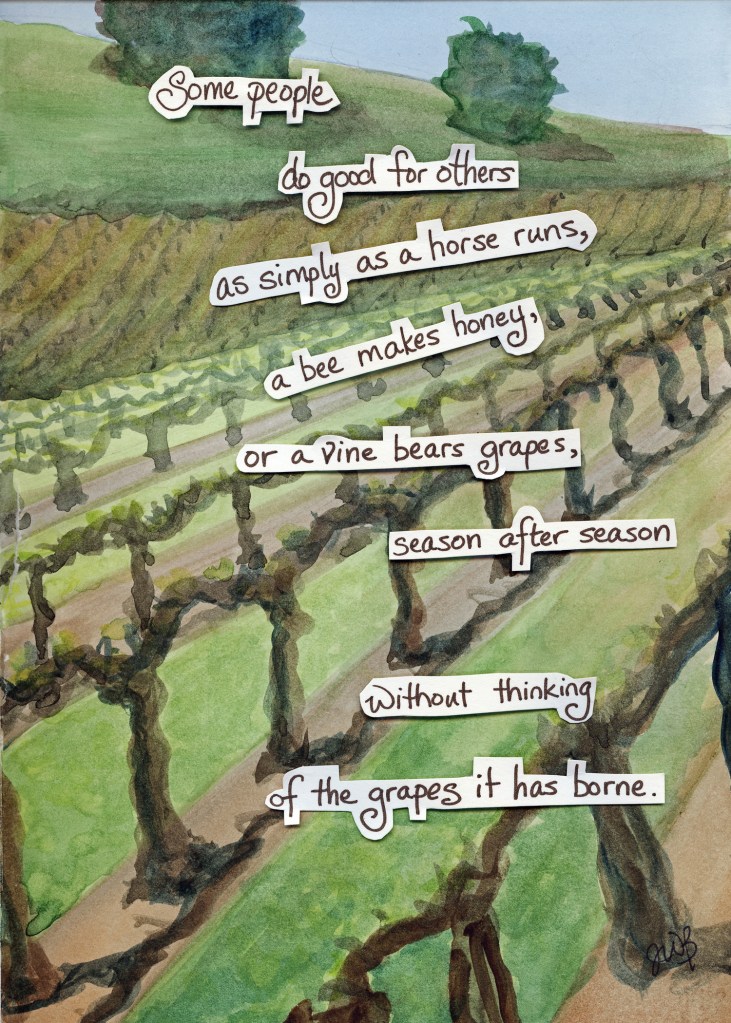 Some people
do good for others
as simply as a horse runs,
a bee makes honey,
or a vine bears grapes,
season after season
without thinking
of the grapes it has borne.